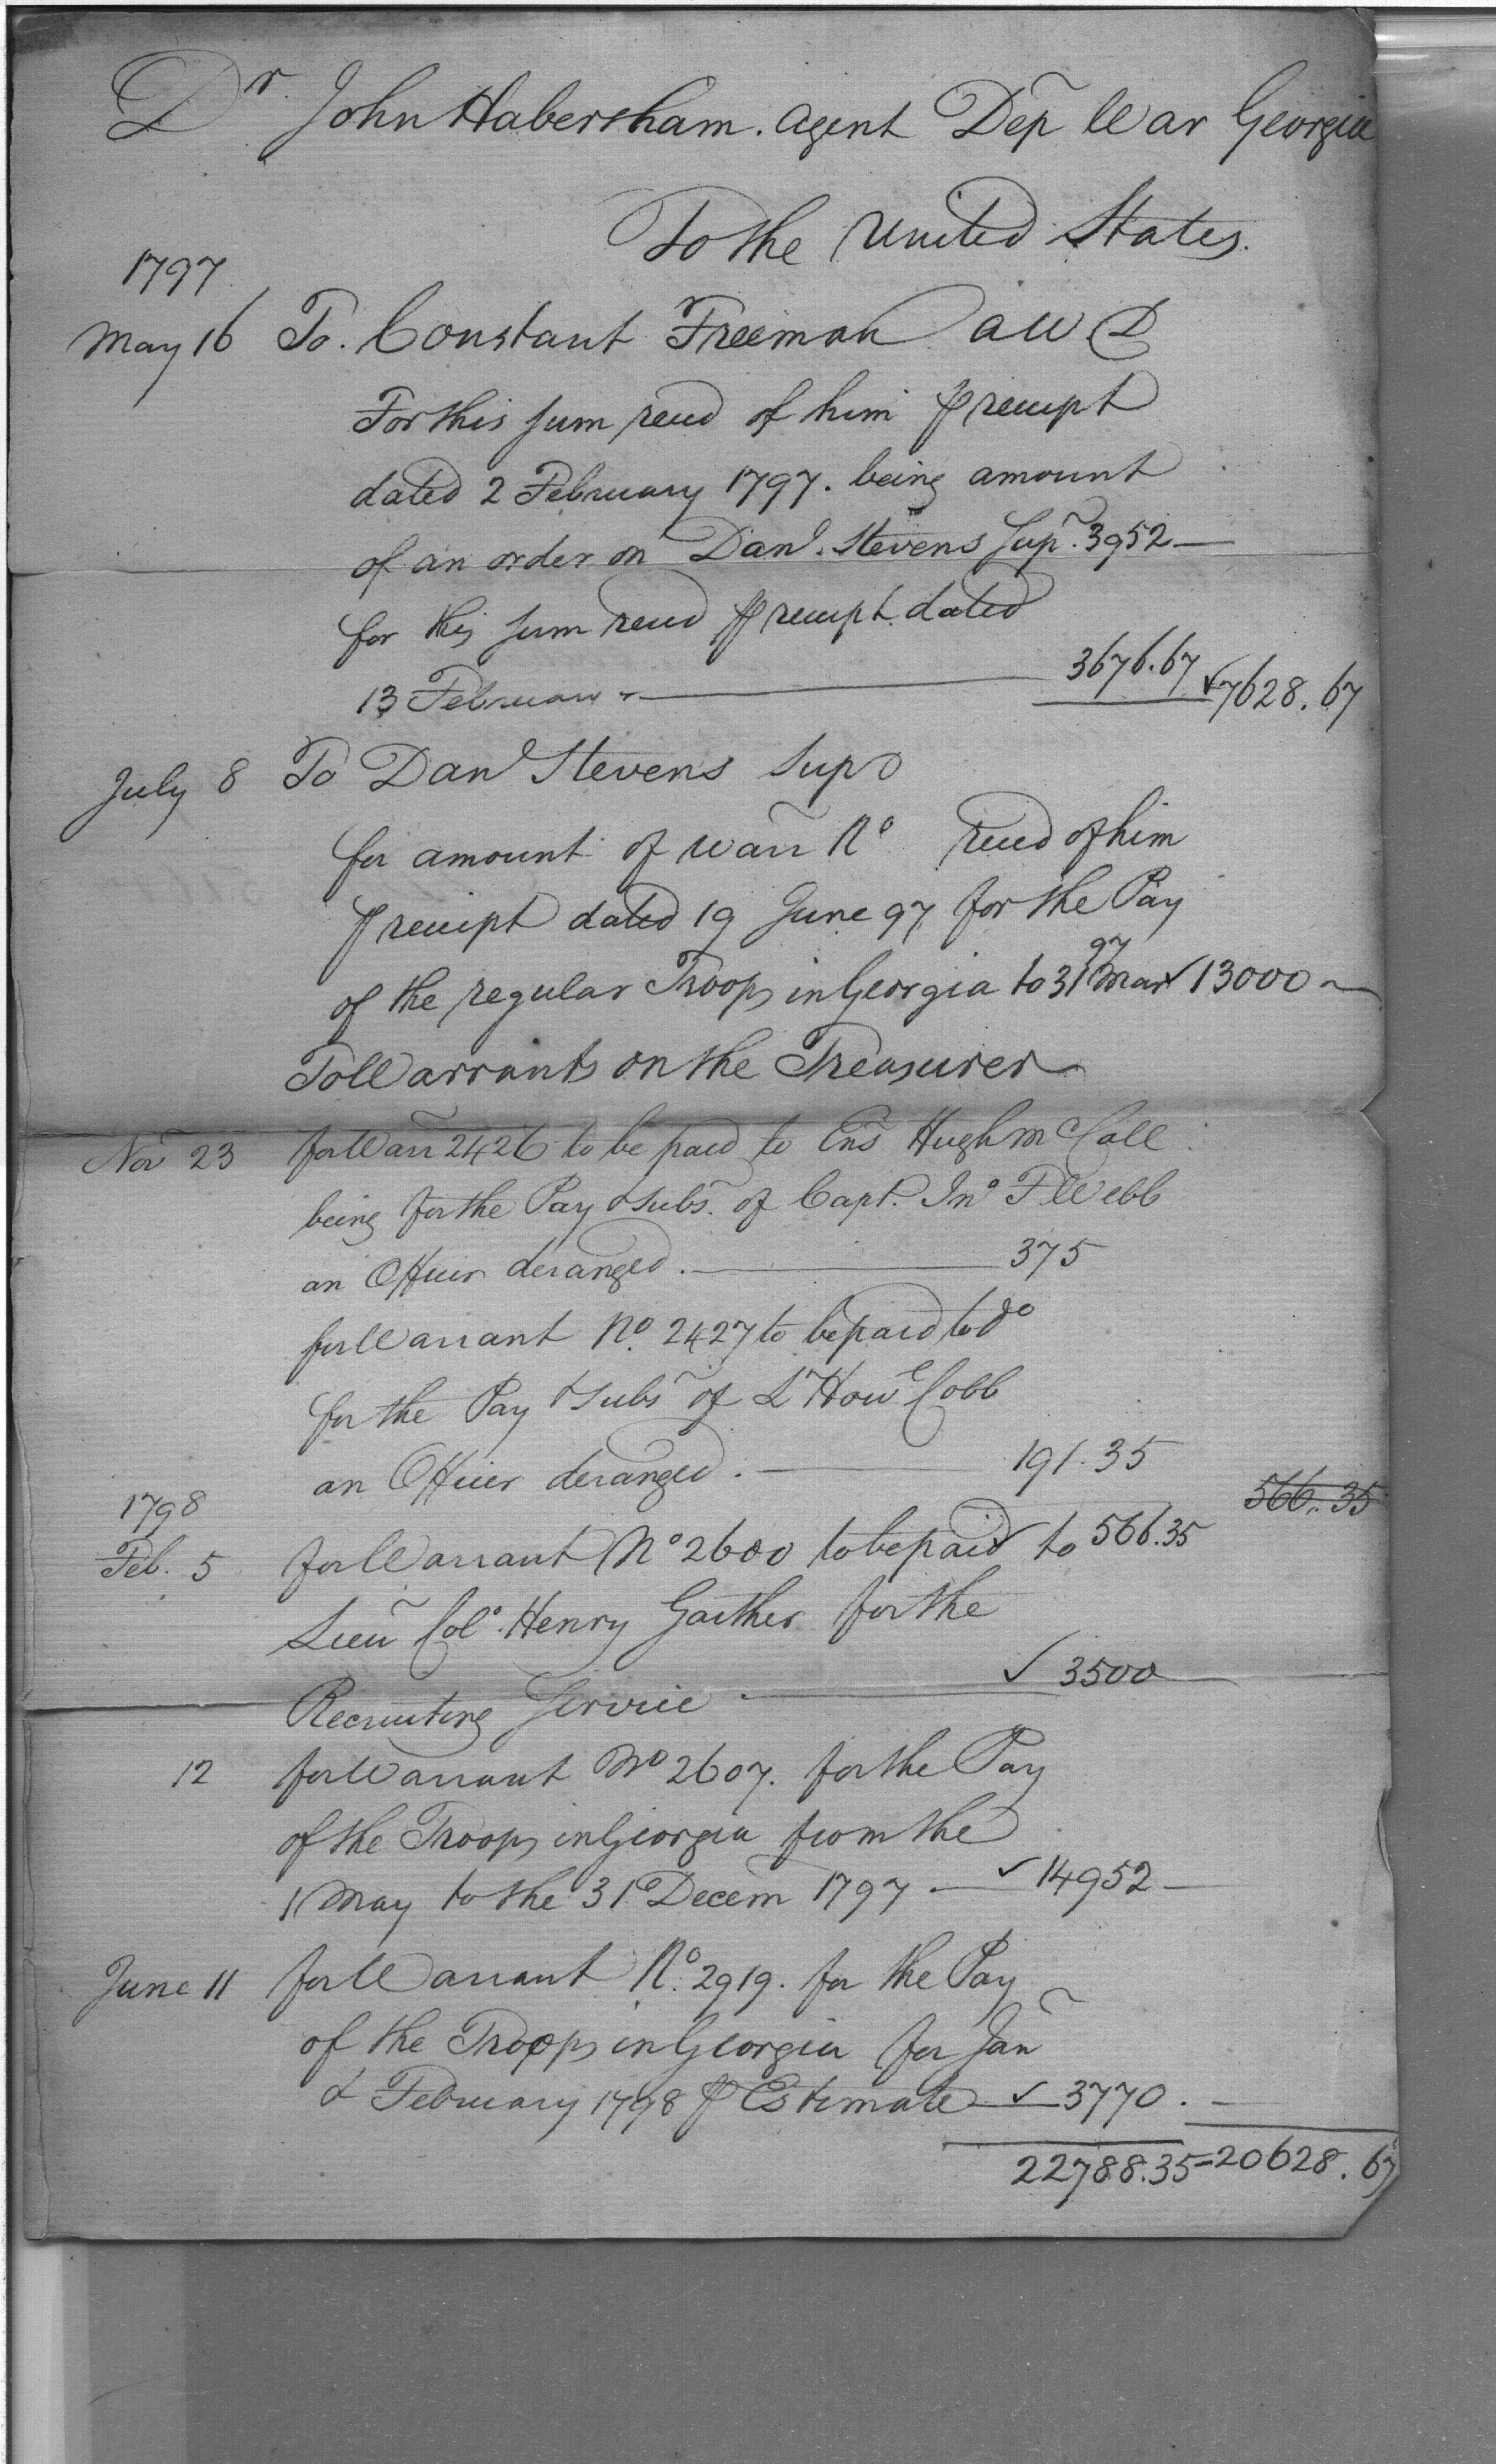 Dr. John Habersham. Agent Dep War Georgia
To the United States.
1797
May 16 To. Constant Freeman A W D
For this sum recd of him ⅌ receipt
dated 2 February 1797. being amount
of an order on Danl. Stevens Sup. 3952—
for this sum recd ⅌ receipt dated
13 February — 3676.67 ✓7628.67
July 8 To Danl Stevens Sup
for amount of warr No recd of him
⅌ receipt dated 19 June 97 for the Pay
of the regular Troops in Georgia to 31 Mar 97 ✓ 13000 —
To Warrants on the Treasurer
Nov 23 for Warr 2426 to be paid to Ens Hugh McCall
being for the Pay & Subs. of Capt. Jno F Webb
an Officer deranged. — 375
for Warrant No. 2427 to be paid to do
for the Pay & Subs of Lt Howl Cobb
an Officer deranged. — 191.35
566.35
1798
Feb. 5 for Warrant No 2600 to be paid to 566.35
Lieu Colo. Henry Gaither for the
Recruiting Service — ✓ 3500
12 for Warrant No 2607. for the Pay
of the Troops in Georgia from the
1 May to the 31 Decem 1797 — ✓ 14952 —
June 11 for Warrant No. 2919. for the Pay
of the Troops in Georgia for Jan
& February 1798 ⅌ Estimate — ✓ 3770. —
22788.35=20628.67